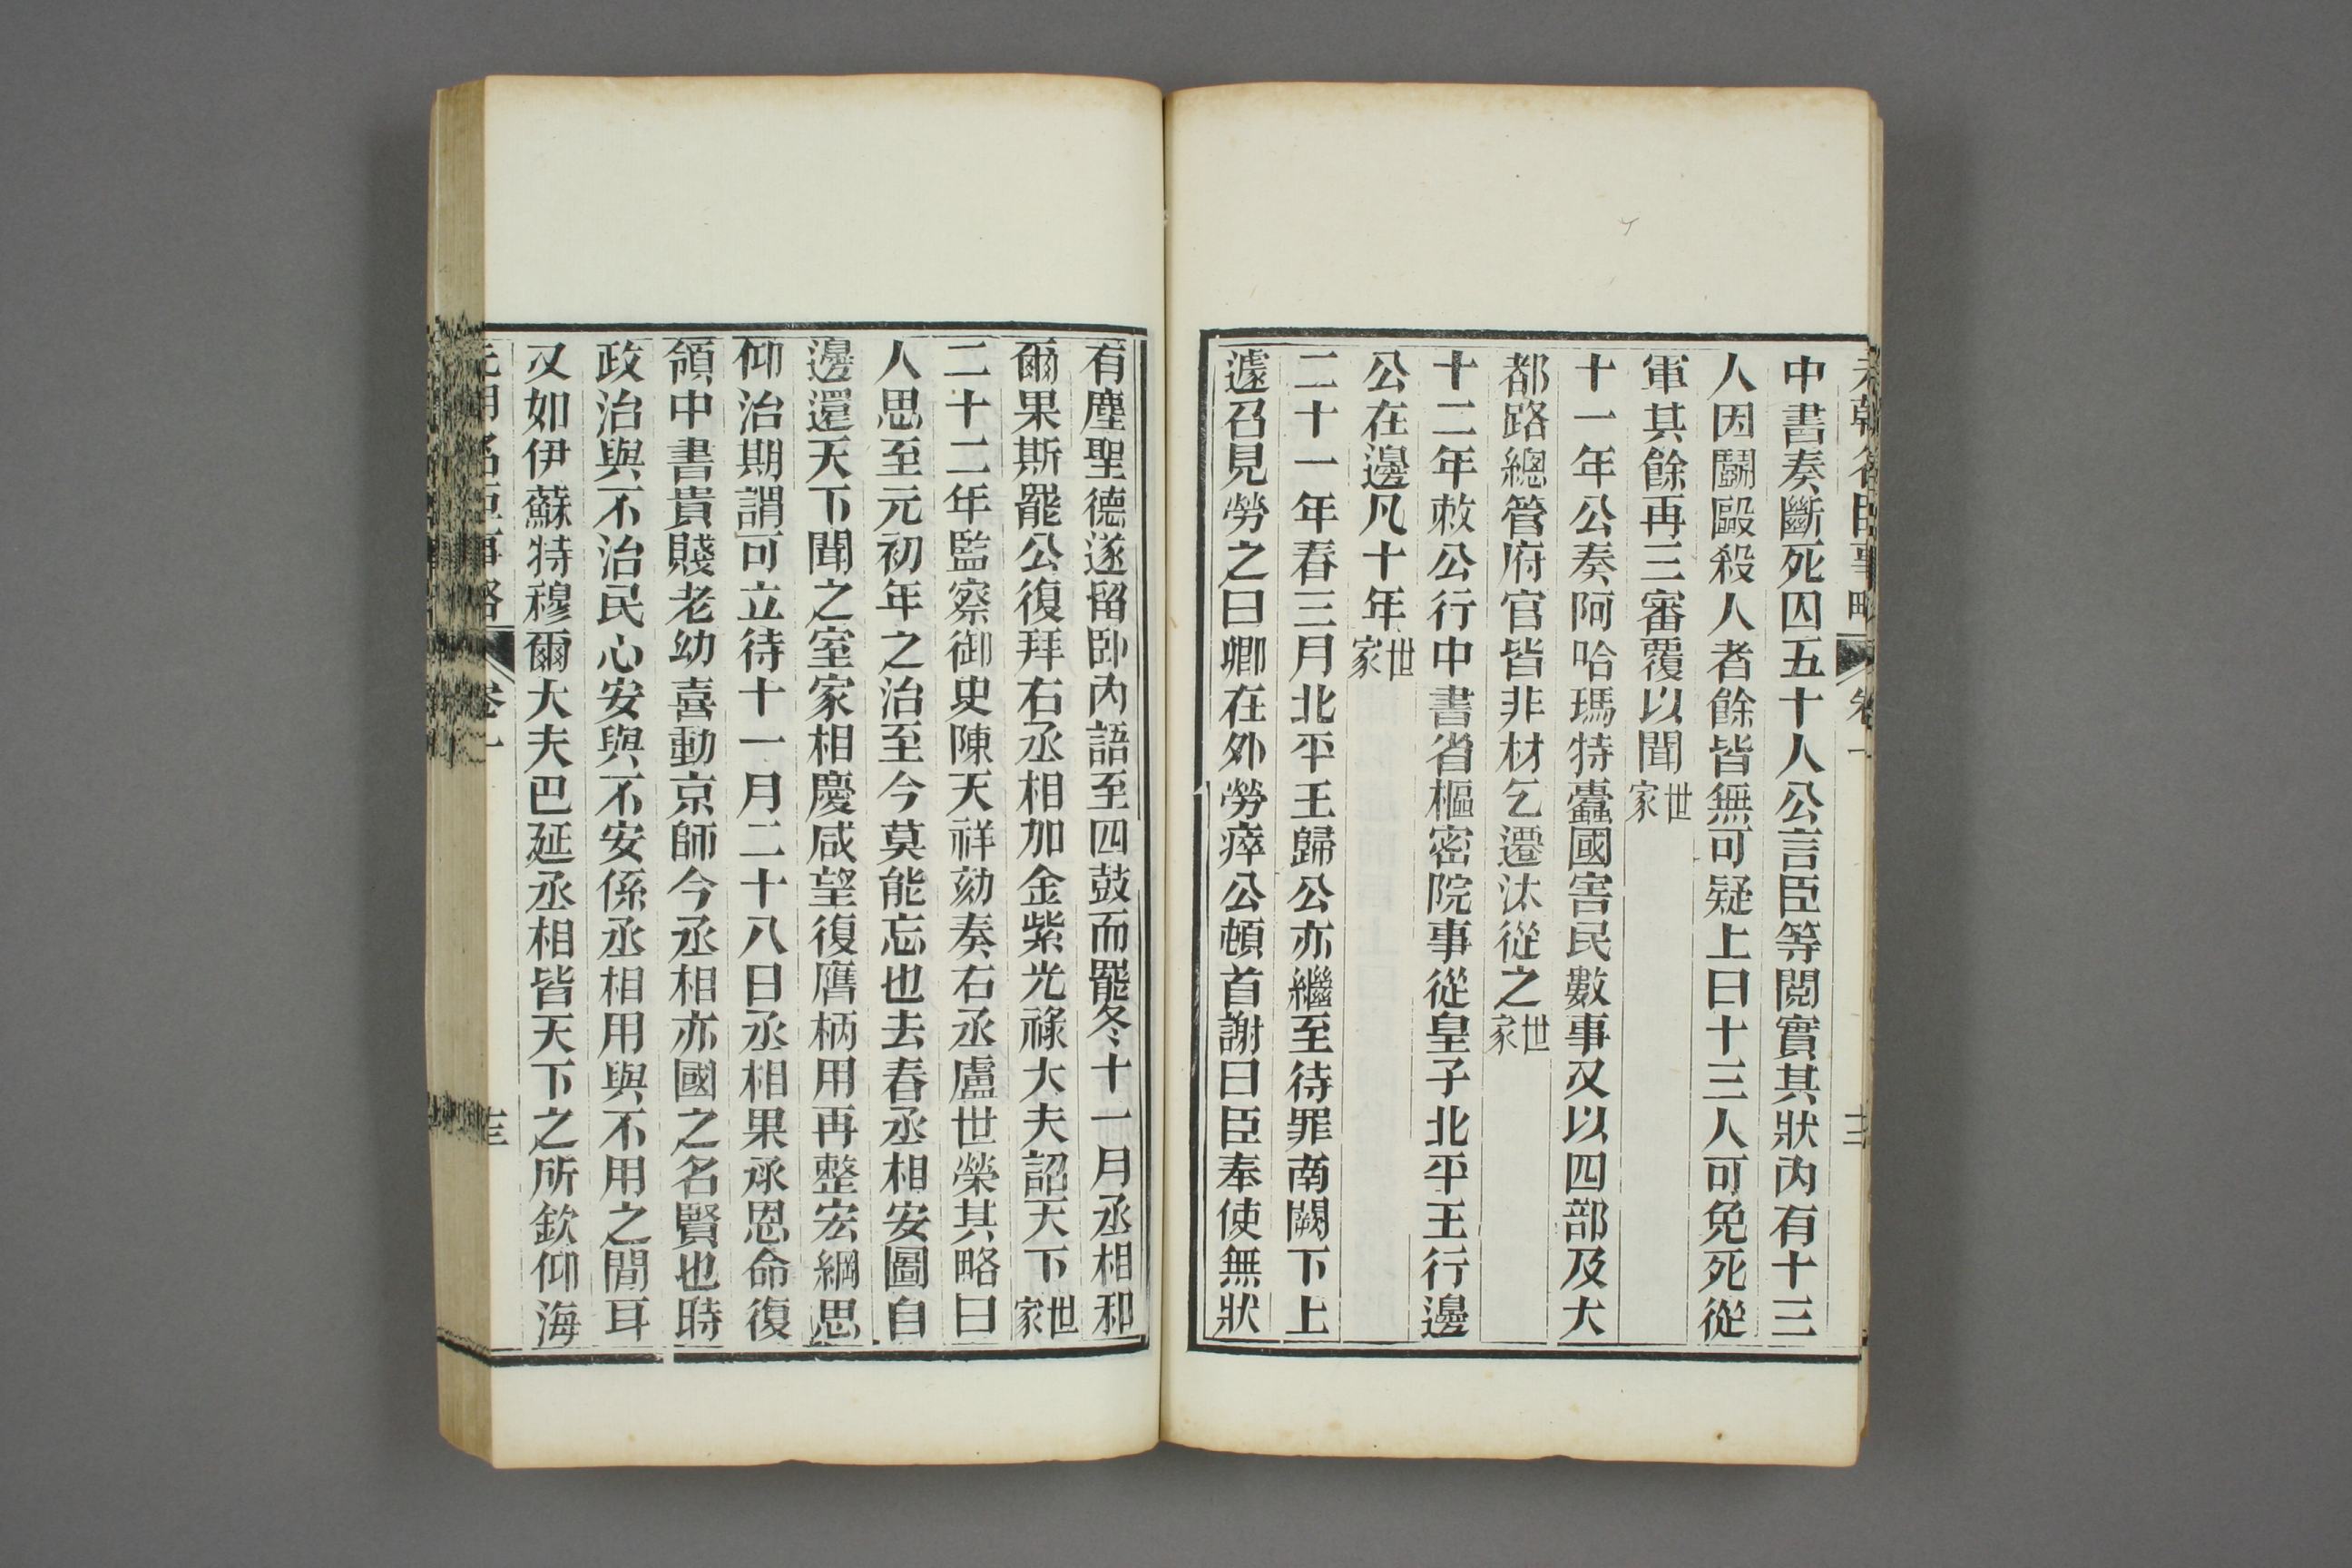 元朝名臣事略 卷一 十二
中書奏斷死囚五十人公言臣等閱實其狀內有十三
人因鬭毆殺人者餘皆無可疑上曰十三人可免死從
軍其餘再三審覆以聞世家
十一年公奏阿哈瑪特蠹國害民數事又以四部及大
都路總管府官皆非材乞遷汰從之世家
十二年敕公行中書省樞密院事從皇子北平王行邊
公在邊凡十年世家
二十一年春三月北平王歸公亦繼至待罪南闕下上
遽召見勞之曰卿在外勞瘁公頓首謝曰臣奉使無狀
有塵聖德遂留臥內語至四鼓而罷冬十一月丞相和
爾果斯罷公復拜右丞相加金紫光祿大夫詔天下世家
二十二年監察御史陳天祥劾奏右丞盧世榮其略曰
人思至元初年之治至今莫能忘也去春丞相安圖自
邊還天下聞之室家相慶咸望復膺柄用再整宏綱思
仰治期謂可立待十一月二十八日丞相果承恩命復
領中書貴賤老幼喜動京師今丞相亦國之名賢也時
政治與不治民心安與不安係丞相用與不用之間耳
又如伊蘇特穆爾大夫巴延丞相皆天下之所欽仰海
元朝名臣事略 卷一